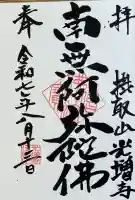 奉拝
摂取山光増寺
南無阿弥陀佛
令和七年八月十三日